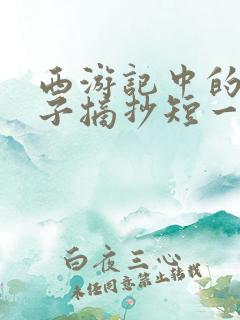 西游记中的
子摘抄短一
白夜三心
未经同意禁止转载